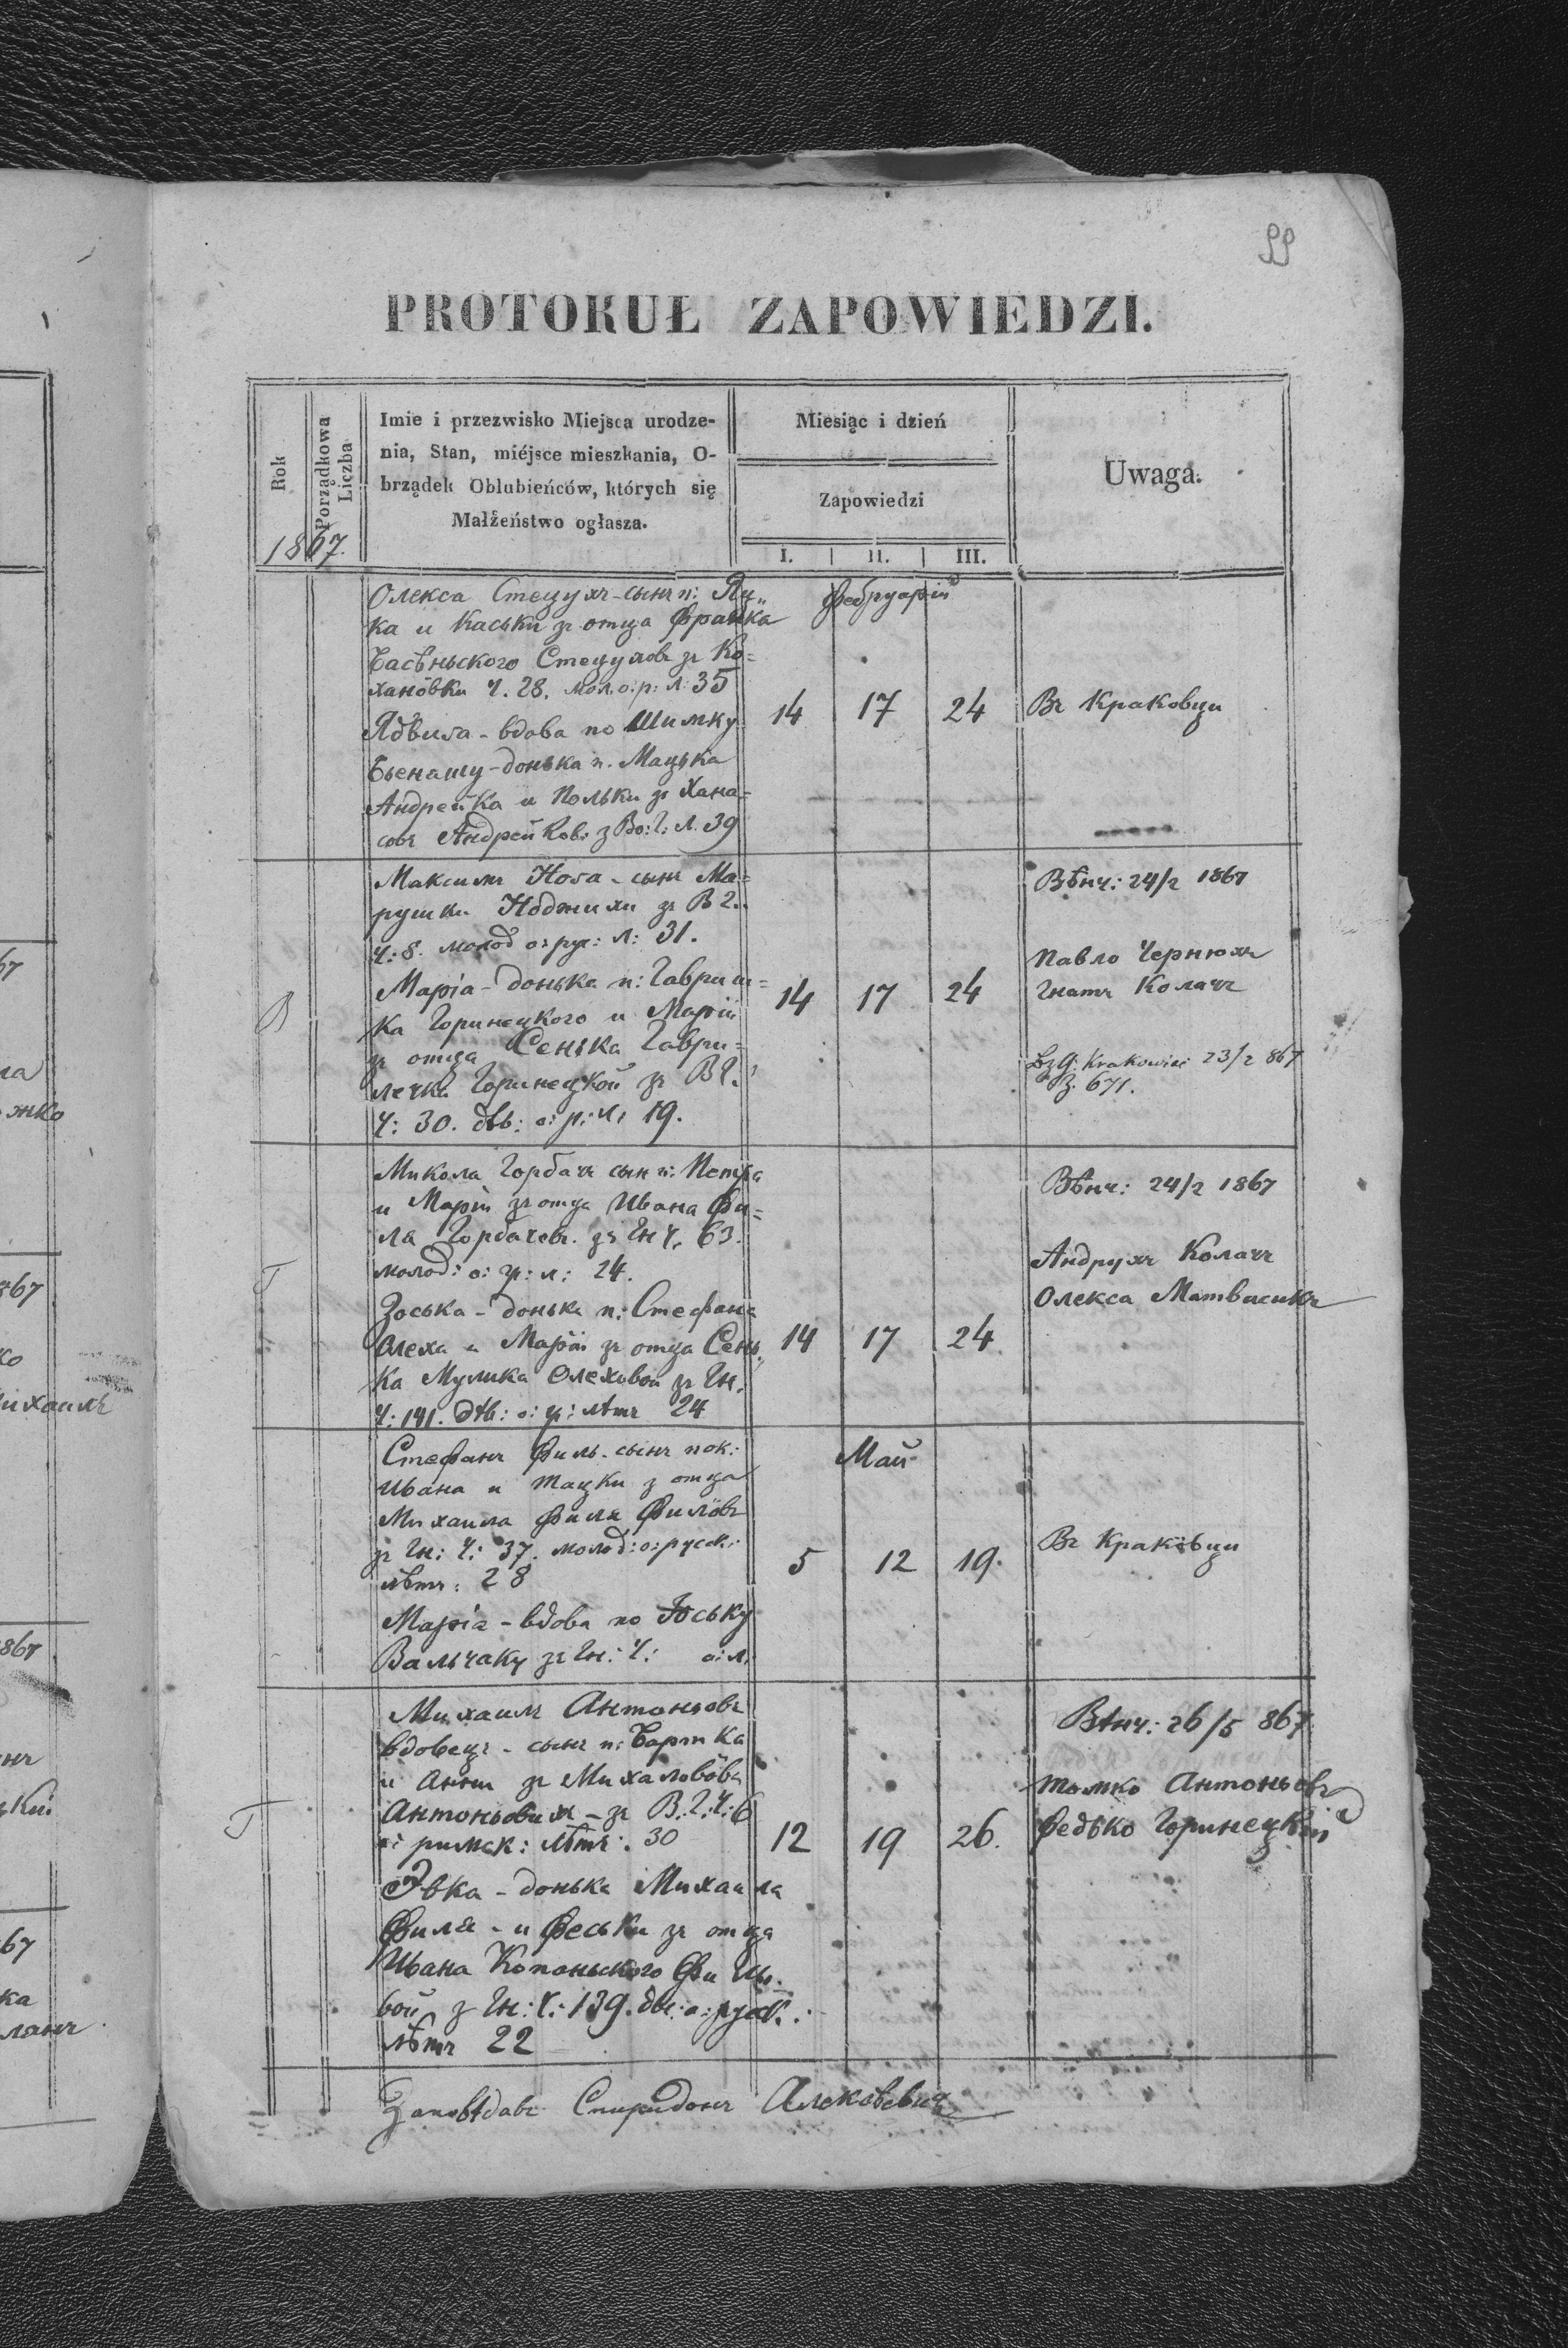 99
PROTOKUŁ ZAPOWIEDZI.
Rok
Porządkowa Liczba
Imie i przezwisko Miejsca urodze-
nia, Stan, miéjsce mieszkania, O-
brządek Oblubieńców, których się
Małżeństwo ogłasza.
Miesiąc i dzień
Zapowiedzi
I. II. III.
Uwaga.
1867.
Олекса Стецухъ - сынъ п: Яц„
ка и Каськи зъ отца Франка
Стецуховъ зъ Ко=
хановки Ч. 28. мол. о: р: л: 35
Ядвига - вдова по Шимку
донька п. Мацька
Андрейка и Польки зъ Хана=
совъ Андрейковъ з Во: Г: л. 39
Фебруарій
14 17 24
Въ Краковци
Максимъ Нога - сынъ Ма=
рушки зъ В Г..
Ч: 8. молод о: рус: л: 31.
Маріа - донька п: Гавриш=
ка Горинецкого и Маріи
зъ отца Сенька Гаври=
лечка Горинецкой зъ В Г.
Ч: 30. дѣв: о: р: л: 19.
В
14 17 24
Вѣнч: 24/2 1867
Павло Чернюхъ
Гнатъ Колачъ
Krakowiec 23/2 867
671.
Микола Горбачъ сын п: Петра
и Маріи зъ отца Ивана Фи=
ля Горбачевъ. зъ Гн Ч. 63.
молод: о: гр: л: 24.
Зоська - донька п: Стефана
Олеха и Маріи зъ отца Сень
ка Мулика Олеховой зъ Гн.
Ч: 141. дѣв: о: гр: лѣтъ 24
Г
14 17 24
Вѣнч: 24/2 1867
Андрухъ Колачъ
Олекса
Стефанъ Филь - сынъ пок:
Ивана и Тацки з отца
Михаила Филя Филовъ
зъ Гн: Ч: 37. молод: о: руск:
лѣтъ: 28
Маріа - вдова по Юську
Вальчаку зъ Гн: Ч: о: л:
Май
5 12 19.
Въ Краковци
Михаилъ Антоньовъ
вдовецъ - сынъ п: Бартка
и Анны зъ
зъ В. Г. Ч: 6
о: римск: лѣтъ: 30
Эвка - донька Михаила
Филя - и Феськи зъ отца
Ивана Копаньского Филь
вой з Гн: Ч: 139. дѣв: о: руск:
лѣтъ 22
Г
12 19 26.
Вѣнч: 26/5 867
Томко Антоньовъ
Федько Горинецкій
Заповѣдавъ Спиридонъ Алексѣевичъ